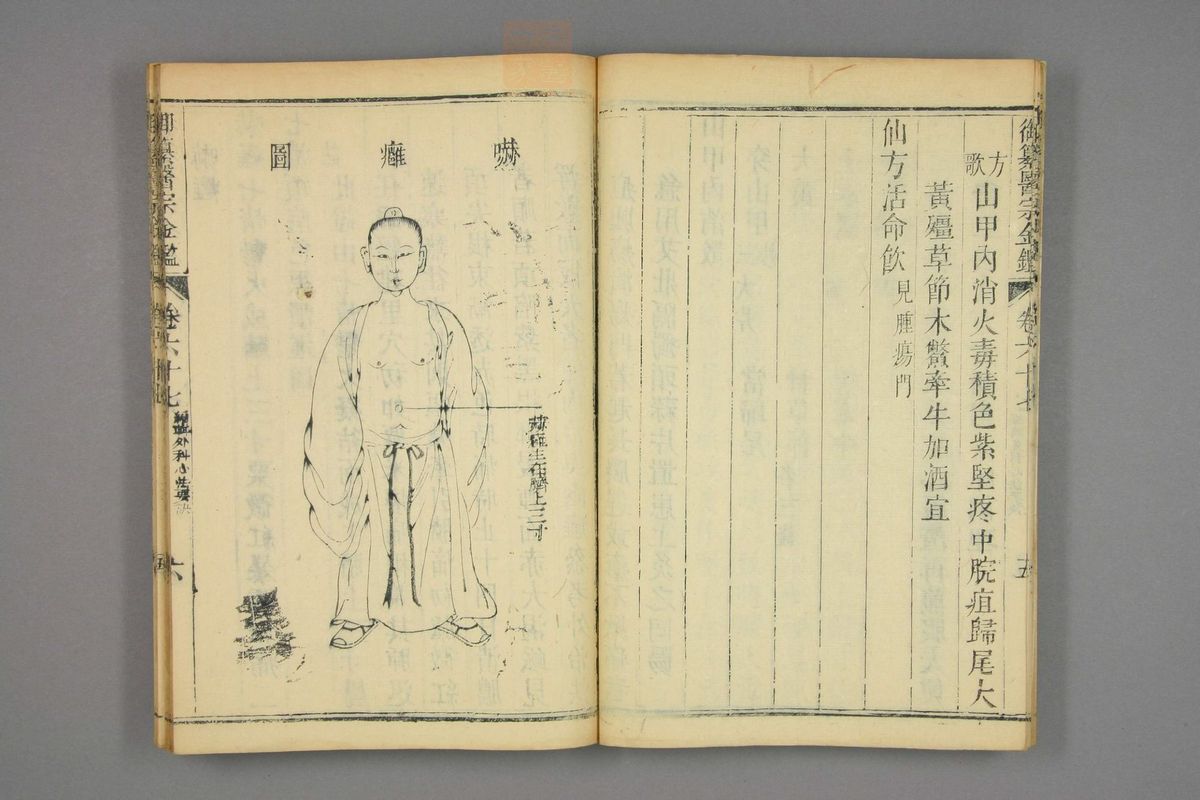 御纂醫宗金鑑
卷六十七
五
方歌
山甲內消火毒積色紫堅疼中脘疽歸尾大
黃殭草節木鱉牽牛加酒宜
仙方活命飲 見腫瘍門
嚇癰圖
赫癰生在臍上三寸
御纂醫宗金鑑
卷六十七
編輯外科心法要訣
六